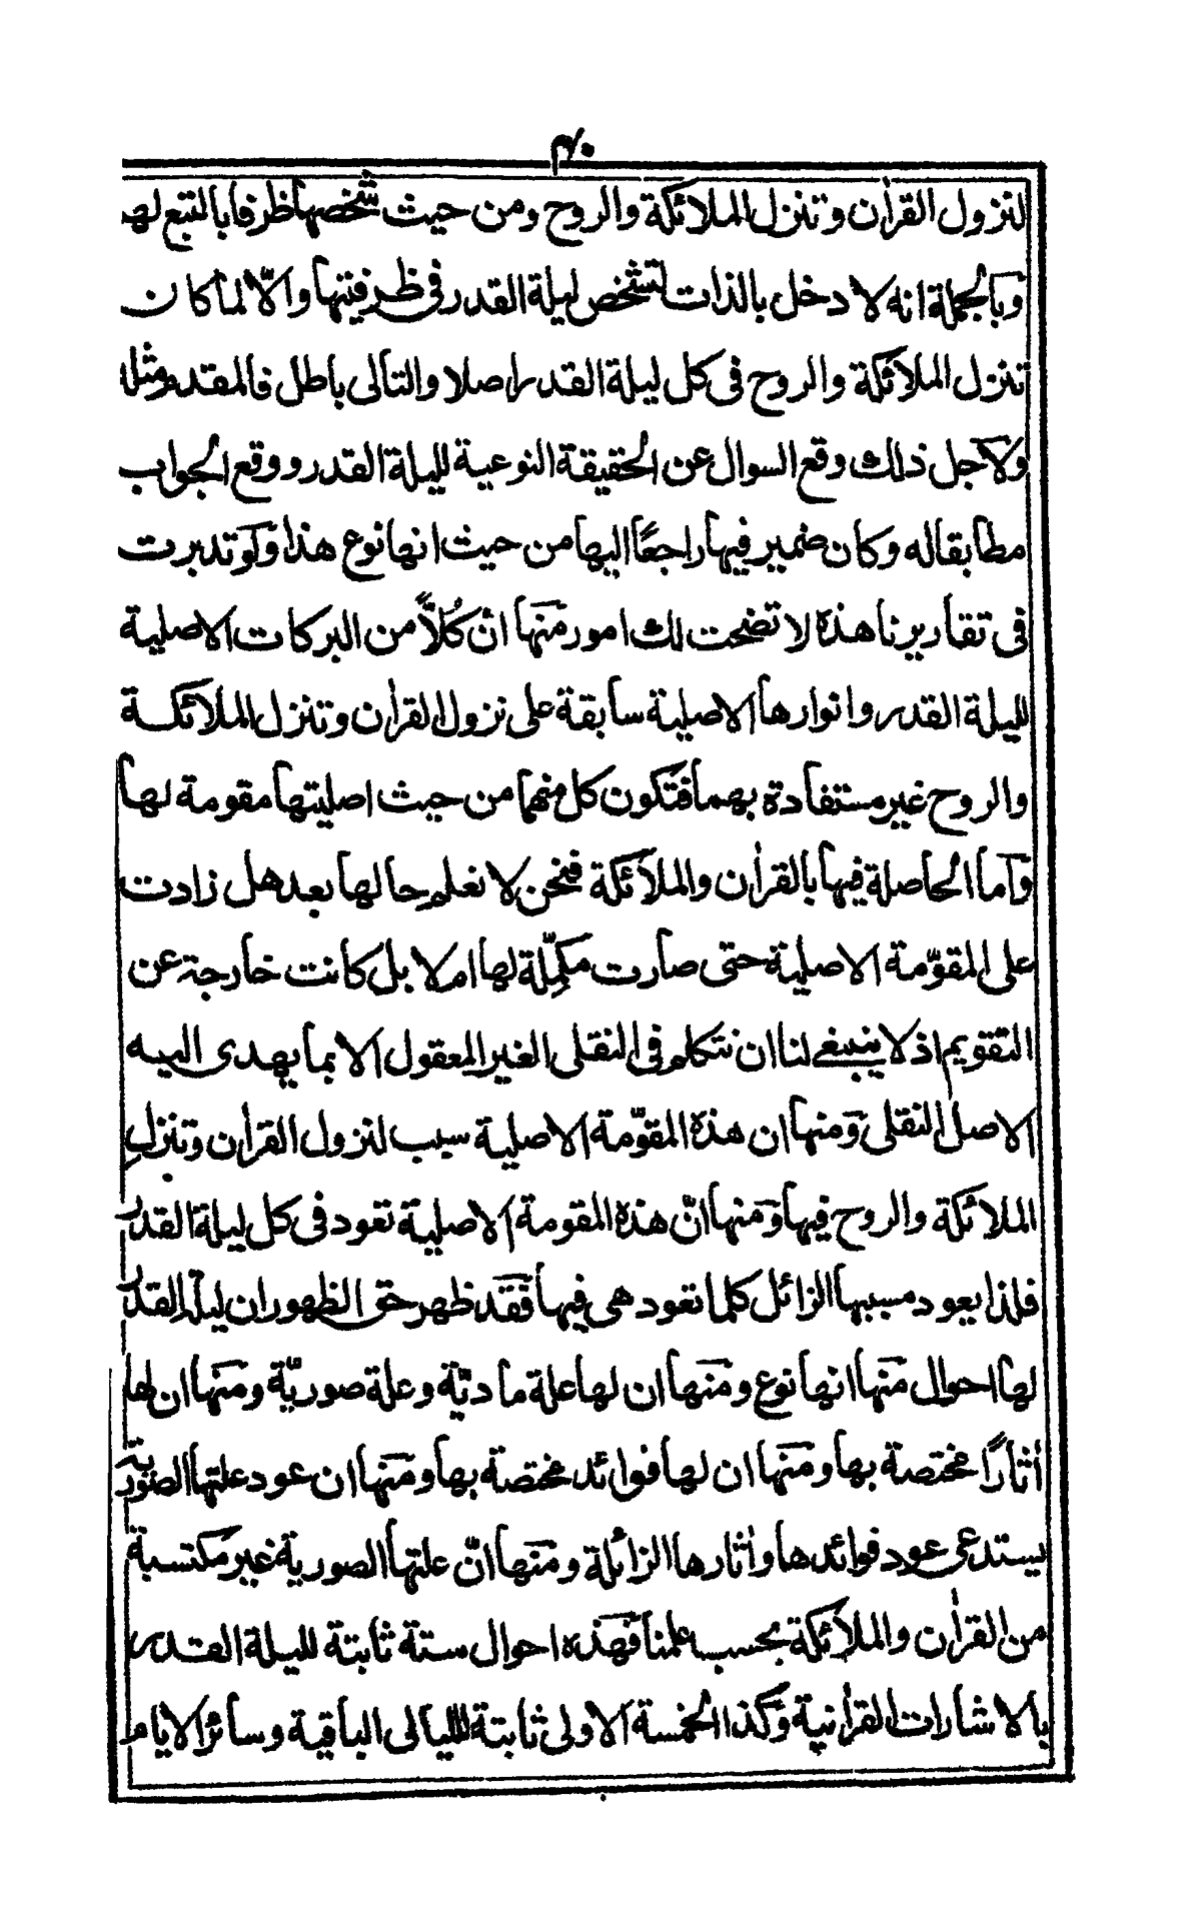 ٤٠
لنزول القرآن وتنزل الملائكة والروح ومن حيث تشخصها ظرفا بالتبع لهما
وبالجملة انه لا دخل بالذات لتشخص ليلة القدر في ظرفيتها والّا لما كان
تنزل الملائكة والروح في كل ليلة القدر اصلا والتالي باطل فالمقدم مثله
ولاجل ذلك وقع السوال عن الحقيقة النوعية لليلة القدر ووقع الجواب
مطابقا له وكان ضمير فيها راجعًا اليها من حيث انها نوع هذا ولو تدبرت
في تقاريرنا هذه لا تضحت لك امور منها ان كُلّاً من البركات الاصلية
لليلة القدر وانوارها الاصلية سابقة على نزول القرآن وتنزل الملائكة
والروح غير مستفادة بهما فتكون كل منهما من حيث اصليتها مقومة لها
واما الحاصلة فيها بالقرآن والملائكة فنحن لا نعلم حالها بعد هل زادت
على المقوّمة الاصلية حتى صارت مكمِّلة لها ام لا بل كانت خارجة عن
التقويم اذ لا ينبغي لنا ان نتكلم في النقلي الغير المعقول الا بما يهدى اليه
الاصل النقلي ومنها ان هذه المقوّمة الاصلية سبب لنزول القرآن وتنزل
الملائكة والروح فيها ومنها انّ هذه المقومة الاصلية تعود في كل ليلة القدر
فلذا يعود مسببها الزائل كلما تعود هي فيها فقد ظهر حق الظهور ان ليلة القدر
لها احوال منها انها نوع ومنها ان لها علة ماديّة وعلة صوريّة ومنها ان لها
آثارًا مختصة بها ومنها ان لها فوائد مختصة بها ومنها ان عود علتها الصورية
يستدعى عود فوائدها وآثارها الزائلة ومنها انّ علتها الصورية غير مكتسبة
من القرآن والملائكة بحسب علمنا فهذه احوال ستة ثابتة لليلة القدر
بالاشارات القرآنية وكذا الخمسة الاولى ثابتة لليالى الباقية وسائر الايام